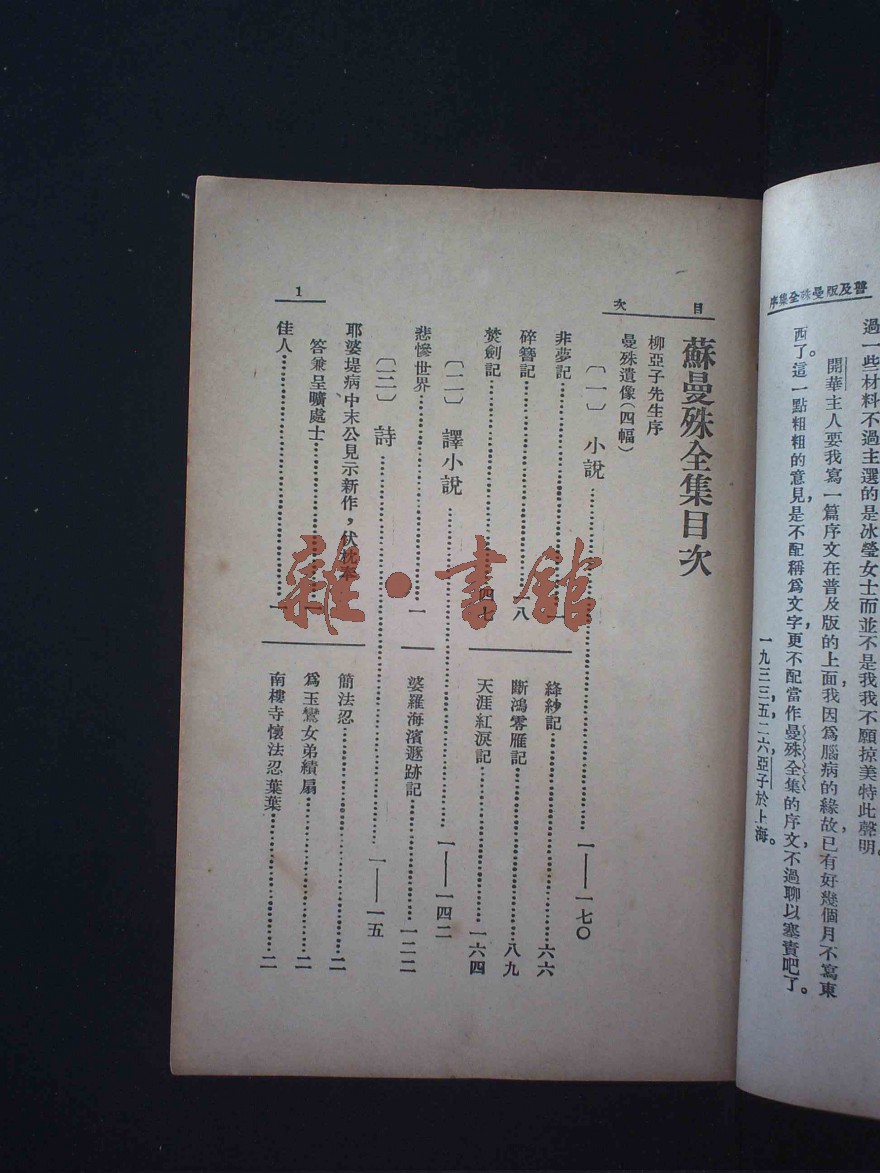 普及版曼殊全集序
過一些材料不過主選的是冰瑩女士而並不是我我不願掠美特此聲明。
開華主人要我寫一篇序文在普及版的上面，我因爲腦病的緣故，已有好幾個月不寫東
西了。這一點粗粗的意見，是不配稱爲文字，更不配當作曼殊全集的序文，不過聊以塞責吧了。
一九三三，五，二六，亞子於上海。
目次
蘇曼殊全集目次
柳亞子先生序
曼殊遺像（四幅）
〔一〕小說……一——一七〇
非夢記……一
絳紗記……六六
碎簪記……一八
斷鴻零雁記……八九
焚劍記……四七
天涯紅淚記……一六四
〔二〕譯小說……一——一四二
悲慘世界……一
婆羅海濱遯跡記……一二二
〔三〕詩……一——一五
耶婆堤病中末公見示新作，伏枕奉
答兼呈曠處士……一
簡法忍……二
爲玉鸞女弟績扇……二
佳人……一
南樓寺懷法忍葉葉……二
1
雜·書館